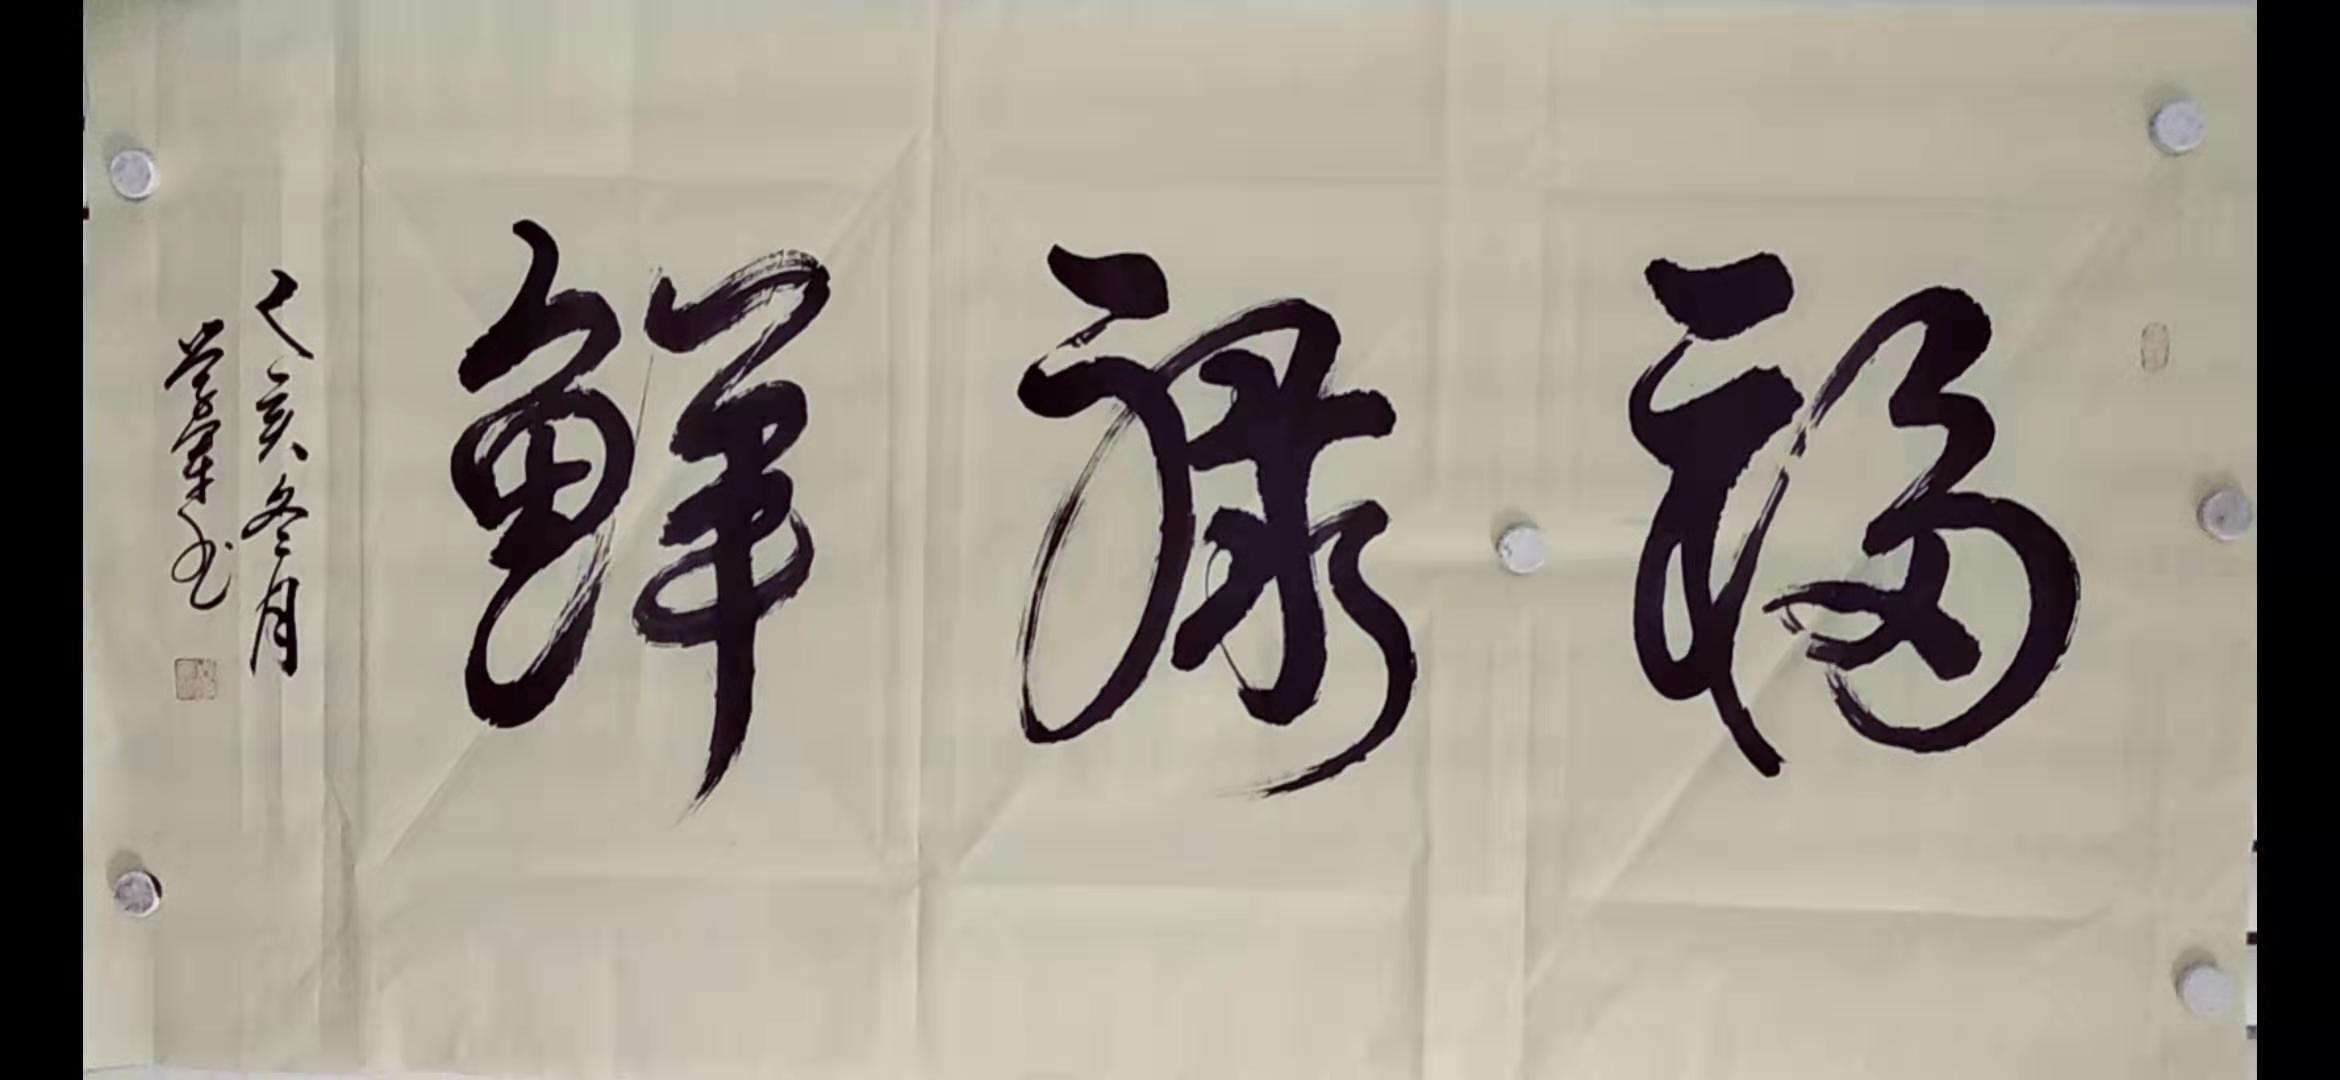 福禄鲜
乙亥冬月
学军书